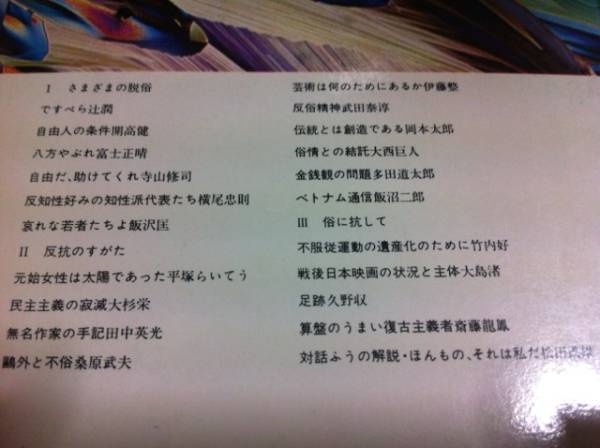 I さまざまの脱俗
ですぺら辻潤
自由人の条件開高健
八方やぶれ富士正晴
自由だ、助けてくれ寺山修司
反知性好みの知性派代表たち横尾忠則
哀れな若者たちよ飯沢匡
II 反抗のすがた
元始女性は太陽であった平塚らいてう
民主主義の寂滅大杉栄
無名作家の手記田中英光
鷗外と不俗桑原武夫
芸術は何のためにあるか伊藤整
反俗精神武田泰淳
伝統とは創造である岡本太郎
俗情との結託大西巨人
金銭観の問題多田道太郎
ベトナム通信飯沼二郎
III 俗に抗して
不服従運動の遺産化のために竹内好
戦後日本映画の状況と主体大島渚
足跡久野収
算盤のうまい復古主義者斎藤龍鳳
対話ふうの解説・ほんもの、それは私だ